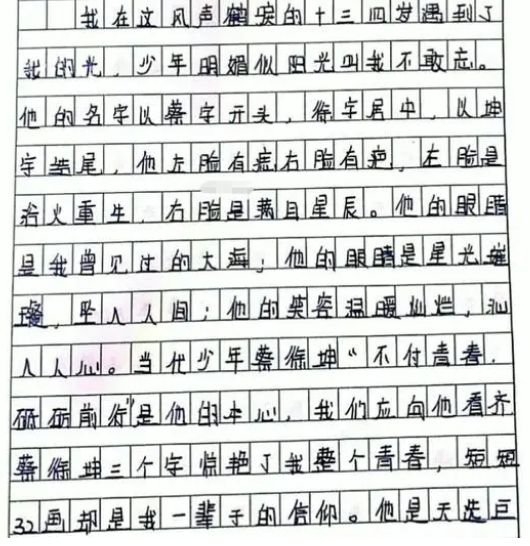 我在这风声鹤唳的十三四岁遇到了
我的光，少年明媚似阳光叫我不敢忘。
他的名字以蔡字开头，徐字居中，以坤
字结尾，他左脸有痣右脸有疤，左脸是
浴火重生，右脸是满目星辰。他的眼睛
是我曾见过的大海；他的眼睛是星光璀
璨，坠入人间；他的笑容温暖灿烂，沁
入人心。当代少年蔡徐坤“不付青春，
砥砺前行”是他的本心，我们应向他看齐
蔡徐坤三个字惊艳了我整个青春，短短
32画却是我一辈子的信仰。他是天选巨